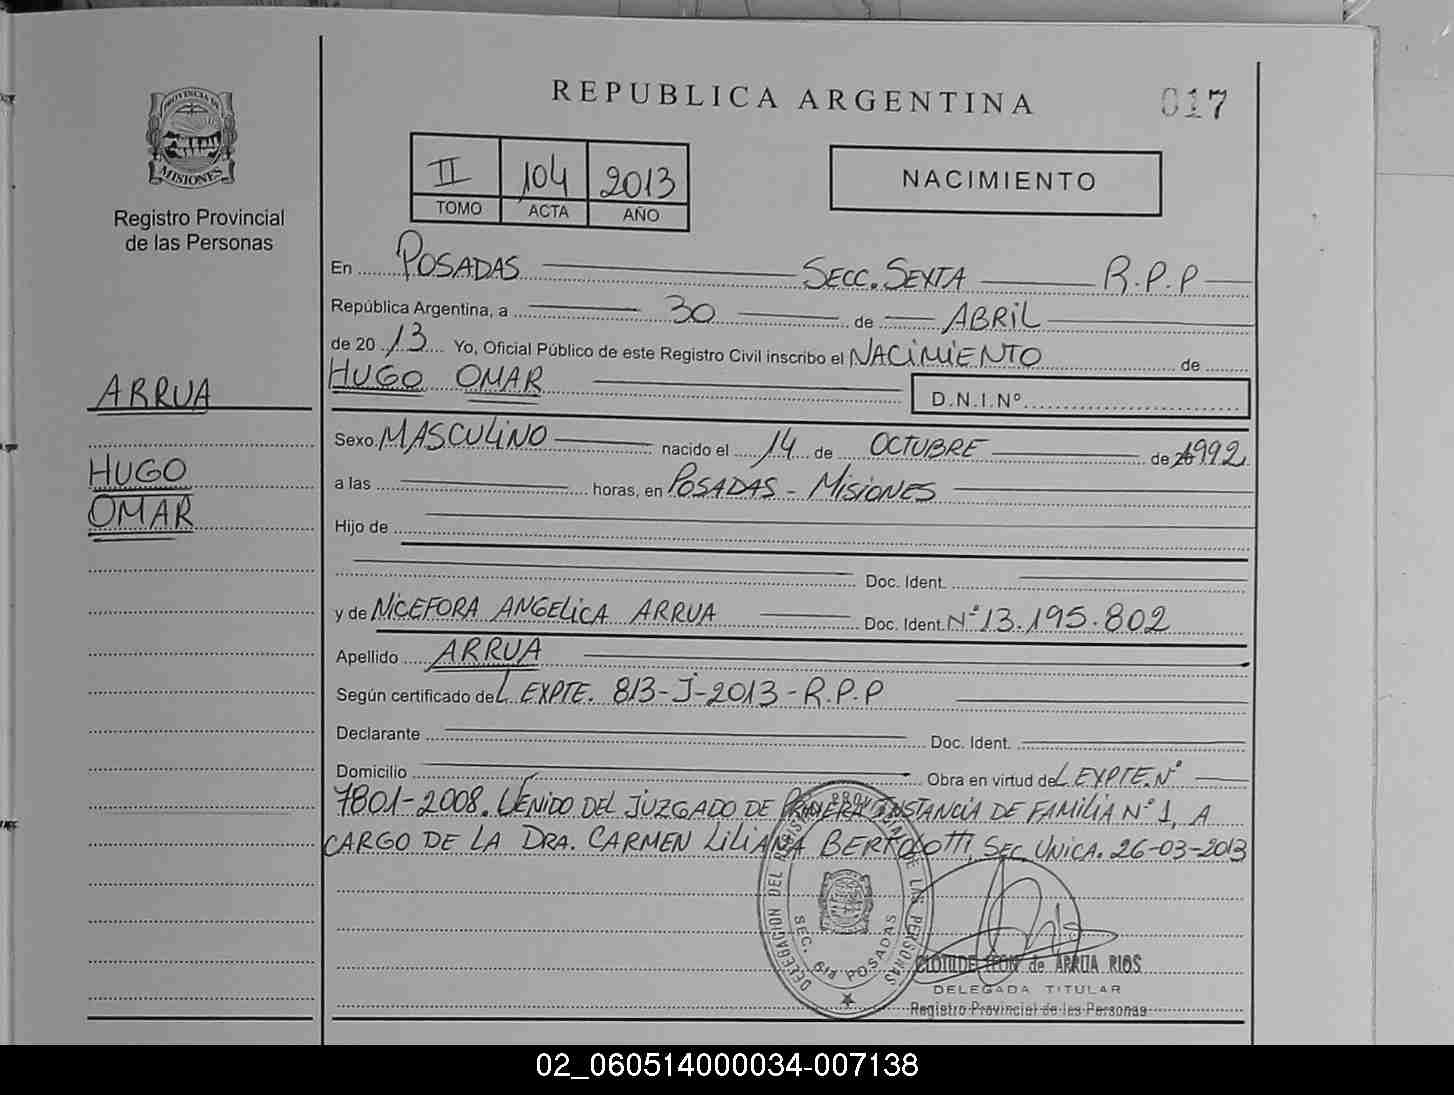 REPUBLICA ARGENTINA
017
PROVINCIA DE
MISIONES
Registro Provincial
de las Personas
II 104 2013
TOMO ACTA AÑO
NACIMIENTO
En POSADAS SECC. SEXTA R.P.P
República Argentina, a 30 de ABRIL
de 20 13 Yo, Oficial Público de este Registro Civil inscribo el NACIMIENTO de
HUGO OMAR
D.N.I.Nº
ARRUA
HUGO
OMAR
Sexo. MASCULINO nacido el 14 de OCTUBRE de 1992
a las horas, en POSADAS - MISIONES
Hijo de
Doc. Ident.
y de NICEFORA ANGELICA ARRUA Doc. Ident. Nº 13.195.802
Apellido ARRUA
Según certificado del EXPTE. 813-J-2013-R.P.P
Declarante Doc. Ident.
Domicilio Obra en virtud del EXPTE. Nº
7801-2008. VENIDO DEL JUZGADO DE PRIMERA INSTANCIA DE FAMILIA Nº 1, A
CARGO DE LA DRA. CARMEN LILIANA BERTOLOTTI, SEC UNICA. 26-03-2013
DELEGACION DEL REGISTRO PROVINCIAL DE LAS PERSONAS
SEC. 6ta POSADAS
CLOTILDE LEON de ARRUA RIOS
DELEGADA TITULAR
Registro Provincial de las Personas
02_060514000034-007138